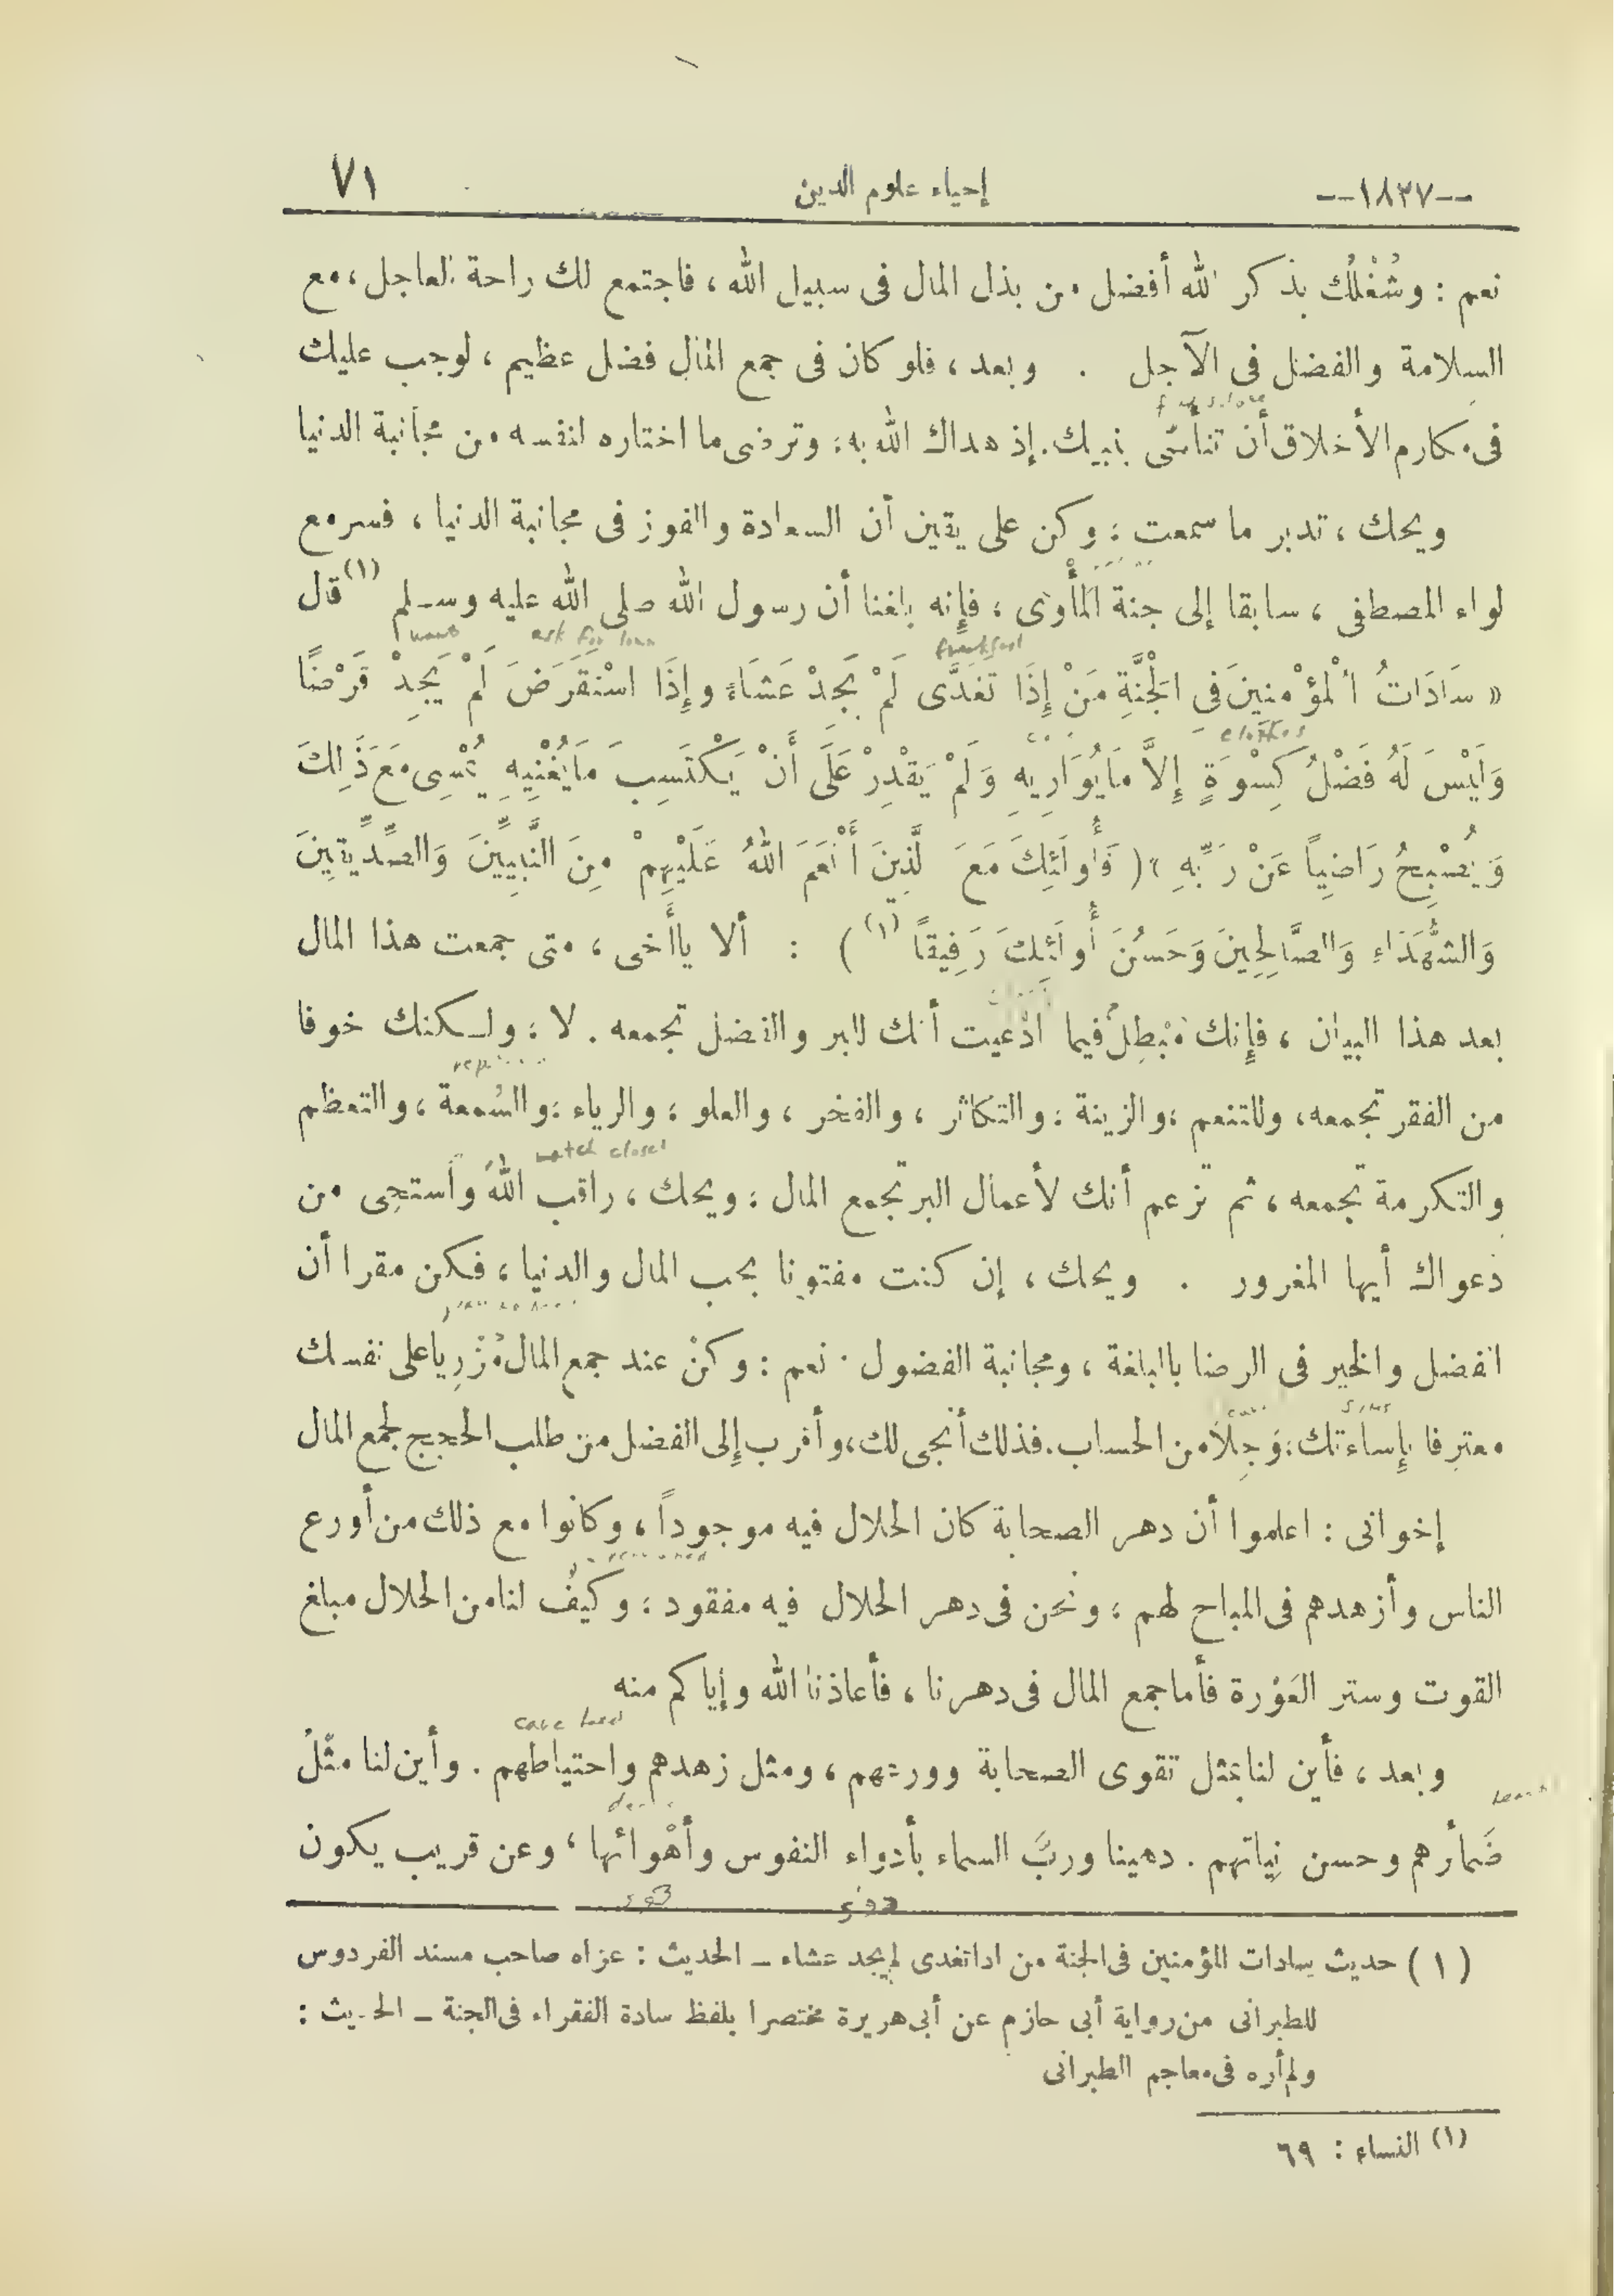 --١٨٣٧-- إحياء علوم الدين ٧١
نعم : وشُغْلُك بذكر الله أفضل من بذل المال فى سبيل الله ، فاجتمع لك راحة العاجل ، مع
السلامة والفضل فى الآجل . وبعد ، فلو كان فى جمع المال فضل عظيم ، لوجب عليك
فى مكارم الأخلاق أن تتأسّى بنبيك . إذ هداك الله به ، وترضى ما اختاره لنفسه من مجانبة الدنيا
ويحك ، تدبر ما سمعت ، وكن على يقين أن السعادة والفوز فى مجانبة الدنيا ، فسر مع
لواء المصطفى ، سابقا إلى جنة المأوى ، فإنه بلغنا أن رسول الله صلى الله عليه وسلم (١) قال
want ask for loan breakfast
« سَادَاتُ الْمُؤْمِنِينَ فِى الْجَنَّةِ مَنْ إِذَا تَغَدَّى لَمْ يَجِدْ عَشَاءً وإِذَا اسْتَقْرَضَ لَمْ يَجِدْ قَرْضًا
clothes
وَلَيْسَ لَهُ فَضْلُ كِسْوَةٍ إِلاَّ مَايُوَارِيهِ وَلَمْ يَقْدِرْ عَلَى أَنْ يَكْتَسِبَ مَايُغْنِيهِ يُمْسِى مَعَ ذَلِكَ
وَيُصْبِحُ رَاضِياً عَنْ رَبِّهِ » ( فَأُولَئِكَ مَعَ الَّذِينَ أَنْعَمَ اللهُ عَلَيْهِمْ مِنَ النَّبِيِّينَ وَالصِّدِّيقِينَ
وَالشُّهَدَاءِ وَالصَّالِحِينَ وَحَسُنَ أُولَئِكَ رَفِيقاً (١) ) : ألا ياأخى ، متى جمعت هذا المال
بعد هذا البيان ، فإنك مُبْطِلٌ فيما ادّعيت أنك للبر والفضل تجمعه . لا ، ولكنك خوفا
من الفقر تجمعه ، وللتنعم ، والزينة ، والتكاثر ، والفخر ، والعلو ، والرياء ، والسُمعة ، والتعظم
watch closel
والتكرمة تجمعه ، ثم تزعم أنك لأعمال البر تجمع المال ، ويحك ، راقب اللهَ واستحِى من
دعواك أيها المغرور . ويحك ، إن كنت مفتونا بحب المال والدنيا ، فكن مقرا أن
الفضل والخير فى الرضا بالبلغة ، ومجانبة الفضول . نعم : وكنْ عند جمع المال مُزْرِيا على نفسك
sins
معترفا بإساءتك ، وَجِلاً من الحساب . فذلك أنجى لك ، وأقرب إلى الفضل من طلب الحجج لجمع المال
إخوانى : اعلموا أن دهر الصحابة كان الحلال فيه موجوداً ، وكانوا مع ذلك من أورع
الناس وأزهدهم فى المباح لهم ، ونحن فى دهر الحلال فيه مفقود ، وكيف لنا من الحلال مبلغ
القوت وستر العَوْرة فأما جمع المال فى دهرنا ، فأعاذنا الله وإياكم منه
وبعد ، فأين لنا بمثل تقوى الصحابة وورعهم ، ومثل زهدهم واحتياطهم . وأين لنا مثلُ
ضَمائرهم وحسن نِياتهم . دهينا وربِّ السماء بأدواء النفوس وأهْوائها ، وعن قريب يكون
(١) حديث سادات المؤمنين فى الجنة من اذا تغدى لم يجد عشاء – الحديث : عزاه صاحب مسند الفردوس
للطبرانى من رواية أبى حازم عن أبى هريرة مختصرا بلفظ سادة الفقراء فى الجنة – الحديث :
ولم أره فى معاجم الطبرانى
(١) النساء : ٦٩